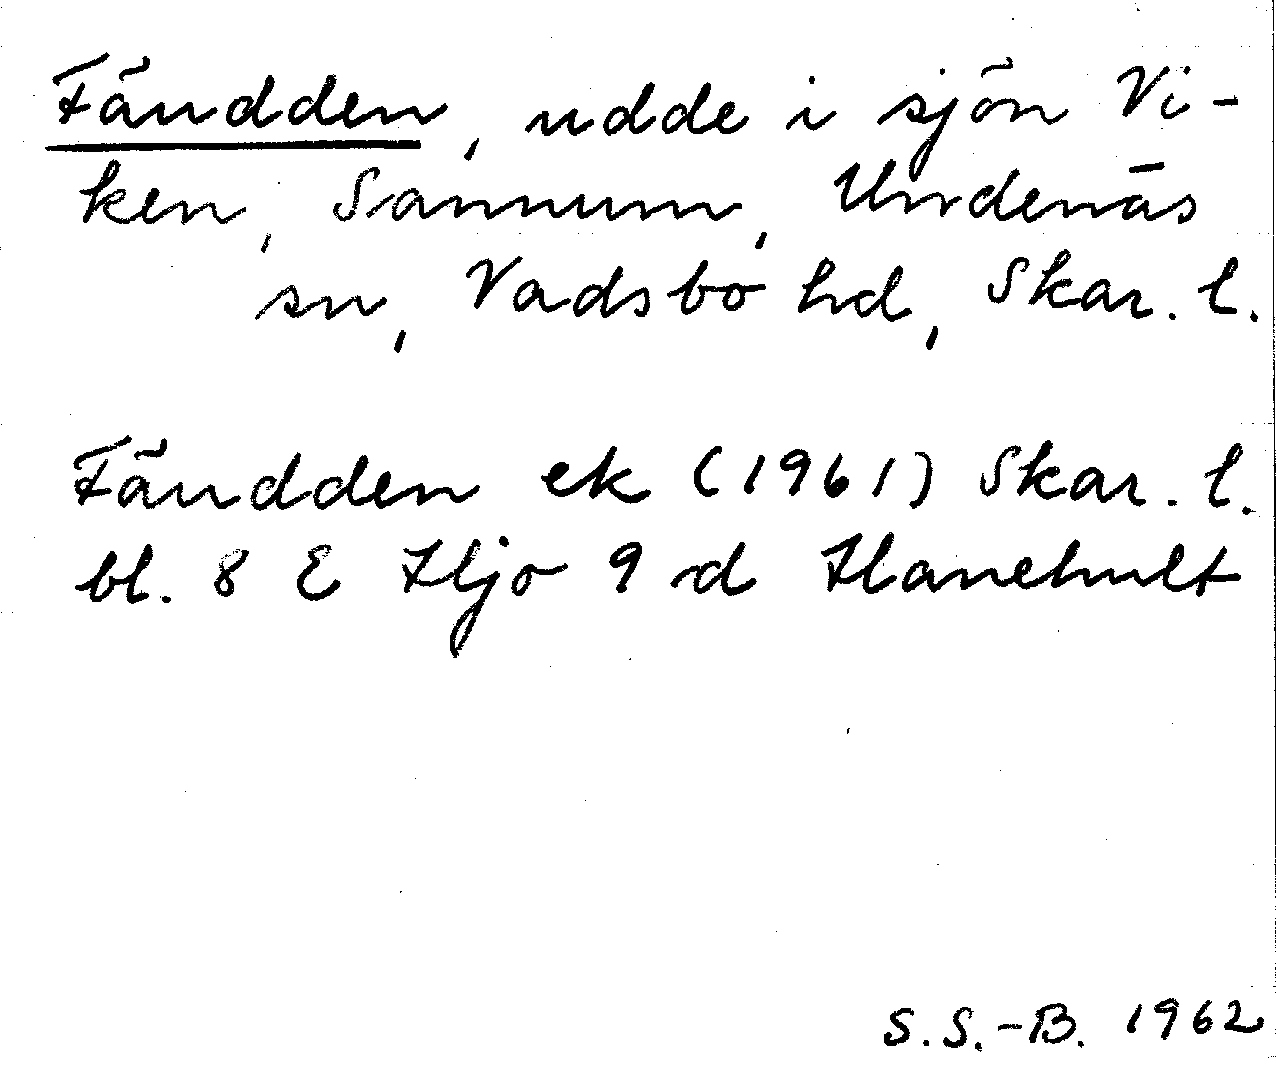 Fäudden, udde i sjön Vi-
ken, Sannum, Undenäs
sn, Vadsbo hd, Skar. l.
Fäudden ek (1961) Skar. l.
bl. 8 E Hjo 9 d Hanehult
S.S.-B. 1962